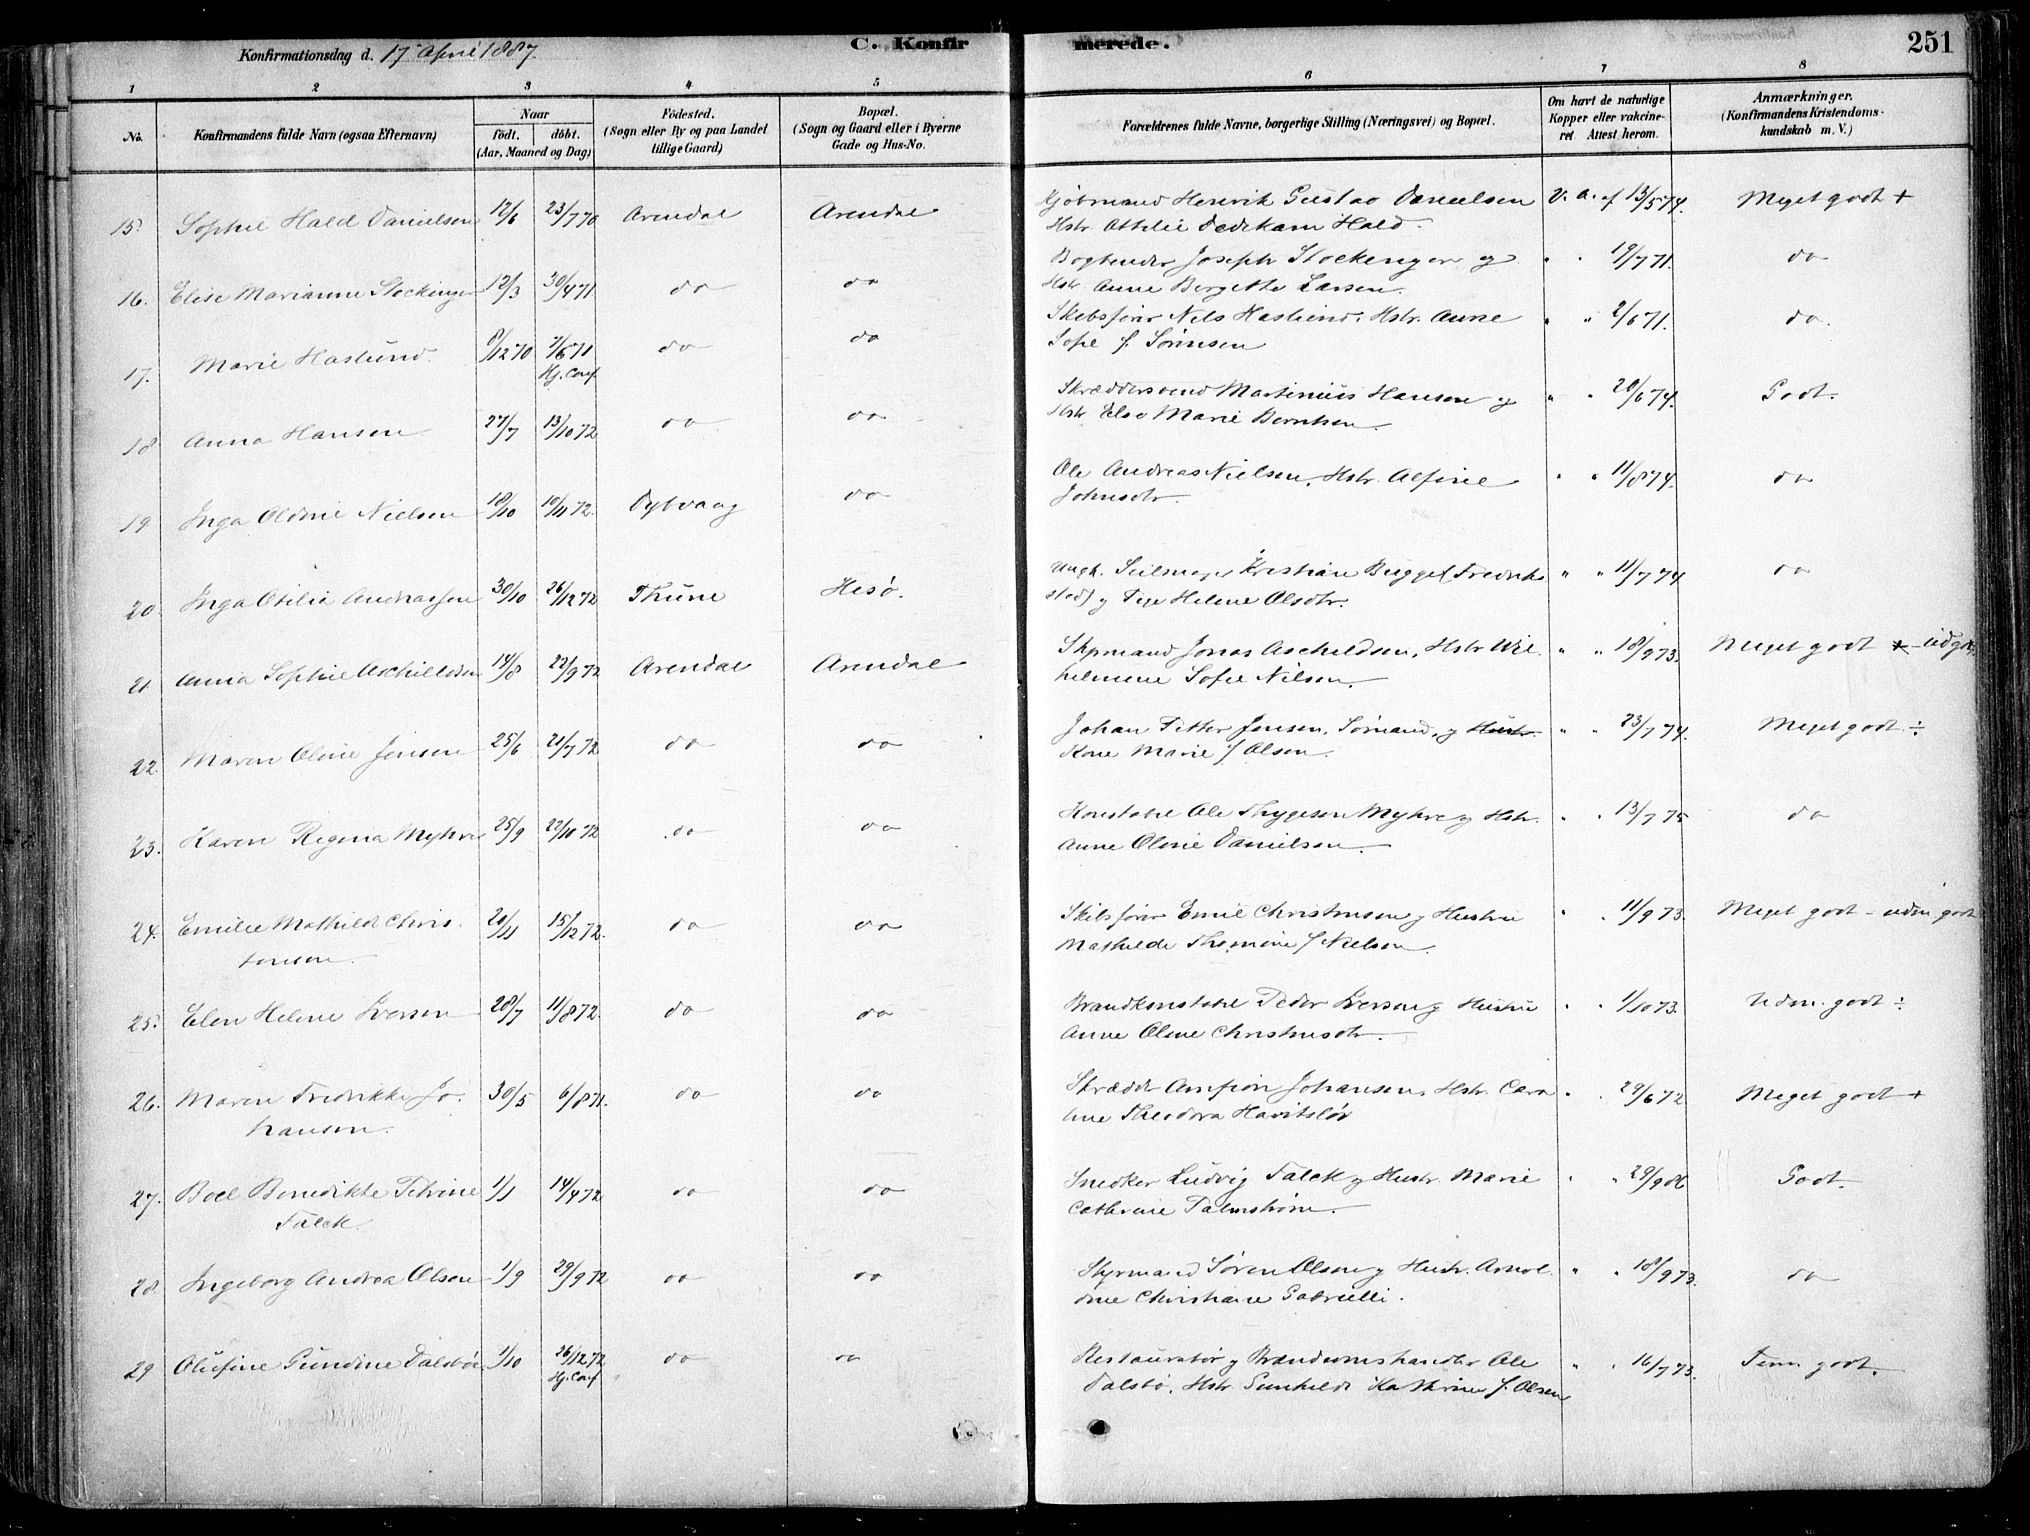 Konfirmationsdag d. 17 April 1887.
C. Konfirmerede.
251
1 2 3 4 5 6 7 8
No.
Konfirmandens fulde Navn (ogsaa Efternavn)
Naar
födt. döbt.
(Aar, Maaned og Dag)
Födested.
(Sogn eller By og paa Landet
tillige Gaard)
Bopæl.
(Sogn og Gaard eller i Byerne
Gade og Hus-No.
Forældrenes fulde Navne, borgerlige Stilling (Næringsvei) og Bopæl.
Om havt de naturlige
Kopper eller vakcine-
ret Attest herom.
Anmærkninger.
(Konfirmandens Kristendoms-
kundskab m. V.)
15. Sophie Hald Danielsen 12/6 23/7 70 Arendal Arendal Kjøbmand Henrik Gustav Danielsen V. A. af 13/5 74. Meget godt +
Hstr. Athilie Dedekam Hald.
16. Elise Marianne Stockinger 12/3 30/4 71 do do Bogbinder Joseph Stockinger og " " 19/7 71. do
Hstr Anne Bergette Larsen.
17. Marie Haslund. 8/12 70 7/6 71 do do Skibsfører Nils Haslund, Hstr. Anne " " 2/6 71. do.
Hj. Conf.
Sofie f. Sørensen
18 Anna Hansen 27/7 13/10 72 do do Skræddersvend Martinius Hansen og " " 20/6 74. Godt.
Hstr Else Marie Berntsen.
19 Inga Oldine Nielsen 18/10 10/11 72. Dybvaag do Ole Andreas Nielsen, Hstr. Alfine " " 11/8 74. do
Johnsdtr.
20. Inga Otilie Andreassen 30/10 26/12 72 Thune Hesø. Ungk. Seilmager Kristian Bugge (Fredrik- " " 11/7 74. do
stad) og Pige Helene Olsdtr.
21. Anna Sophie Aschildsen 14/8 22/9 72 Arendal Arendal Styrmand Jonas Aschildsen, Hstr Wil- " " 18/9 73. Meget godt + - udgodt
helmine Sofie Nilsen.
22. Maren Oline Jensen 25/6 21/7 72 do do Johan Petter Jensen, Sømand, og Hustr. " " 23/7 74. Meget godt ÷
Kone Marie f Olsen.
23. Karen Regina Myhre 25/9 22/10 72 do do Konstabel Ole Thygesen Myhre og Hstr. " " 13/7 75 do
Anne Oline Danielsen.
24. Emilie Mathilde Chris- 20/11 15/12 72. do do Skibsfører Emil Christensen og Hustru " " 11/9 73. Meget godt - udm. godt
tensen.
Mathilde Thomine f Nielsen.
25. Elen Helene Iversen 28/7 11/8 72. do do Brandkonstabel Peder Iversen og Hustru " " 1/10 73. Udm. godt ÷
Anne Oline Christensdtr.
26. Maren Fredrikke Jo- 30/5 6/8 71. do do Skrædder Amfion Johansen, Hstr. Caro- " " 29/6 72 Meget godt +
hansen.
line Theodora
27. Boel Benedikte Petrine 1/1 14/4 72 do do Snedker Ludvig Falck og Hustr. Marie " " 29/9 86 Godt.
Falck.
Cathrine Palmstrøm.
28. Ingeborg Andrea Olsen 1/9 29/9 72 do do Styrmand Søren Olsen og Hustr. Arnol- " " 18/9 73. do
dine Christiane Gabrielli.
29 Olufine Gundine Dalsbøe 1/10 26/12 72 do do Restauratør og Brændevinshandler Ole " " 16/7 73. Tem. godt.
Hj. Conf
Dalsbø, Hstr. Gunhilde Kathrine f. Olsen